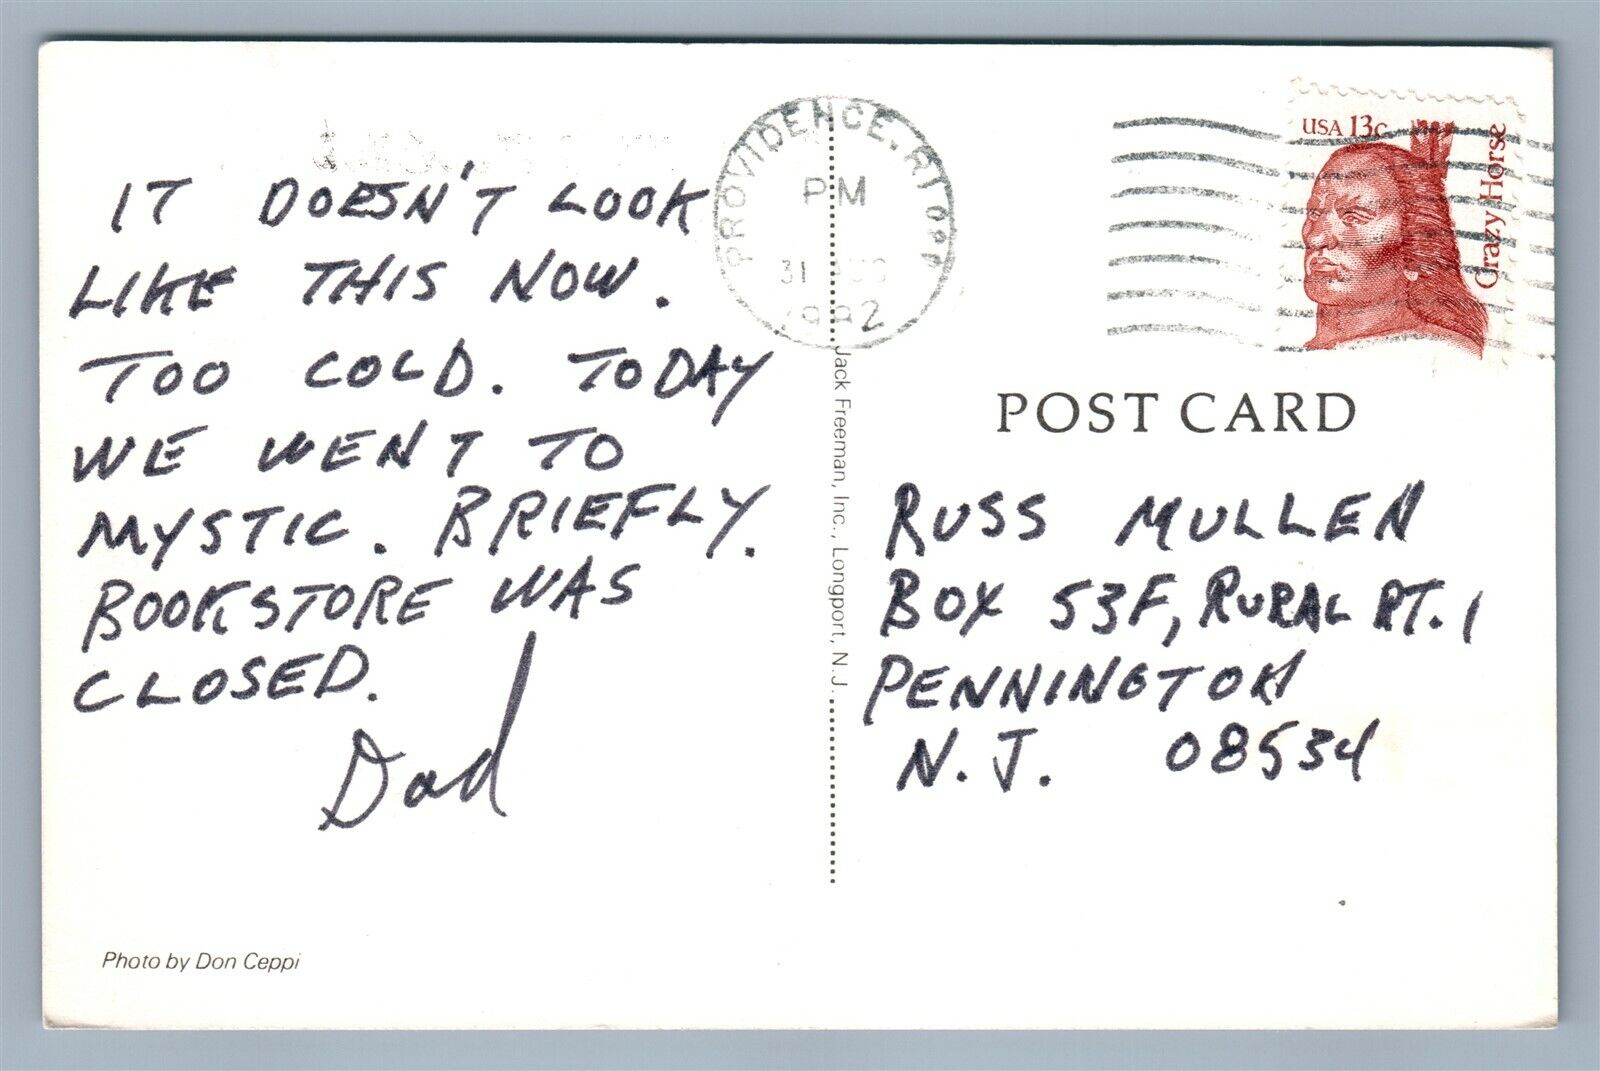 IT DOESN'T LOOK
LIKE THIS NOW.
TOO COLD. TODAY
WE WENT TO
MYSTIC. BRIEFLY.
BOOKSTORE WAS
CLOSED.
Dad
Photo by Don Ceppi
PROVIDENCE, RI
PM
31 AUG
1992
Jack Freeman, Inc., Longport, N.J.
USA 13c
Crazy Horse
POST CARD
RUSS MULLEN
BOX 53F, RURAL RT. 1
PENNINGTON
N.J. 08534